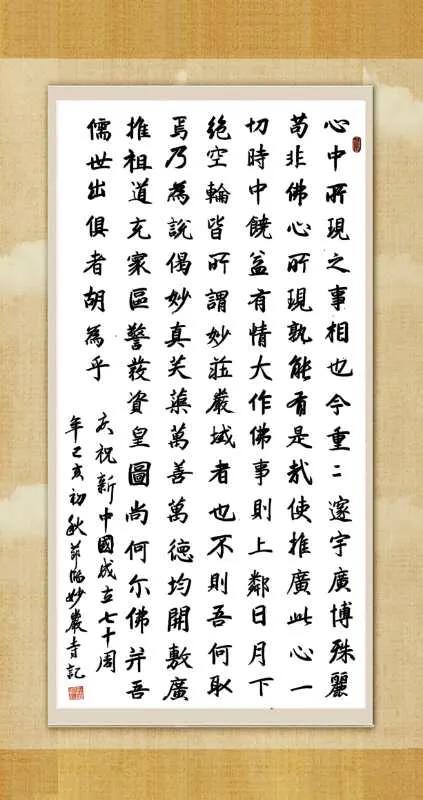 心中所現之事相也今重〻邃宇廣博殊麗
苟非佛心所現孰能有是哉使推廣此心一
切時中饒益有情大作佛事則上鄰日月下
絕空輪皆所謂妙莊嚴域者也不則吾何取
焉乃為說偈妙真芙蕖萬善萬德均開敷廣
推祖道充寰區警發資皇圖尚何尔佛并吾
儒世出俱者胡為乎
庆祝新中國成立七十周
年己亥初秋節臨妙嚴寺記